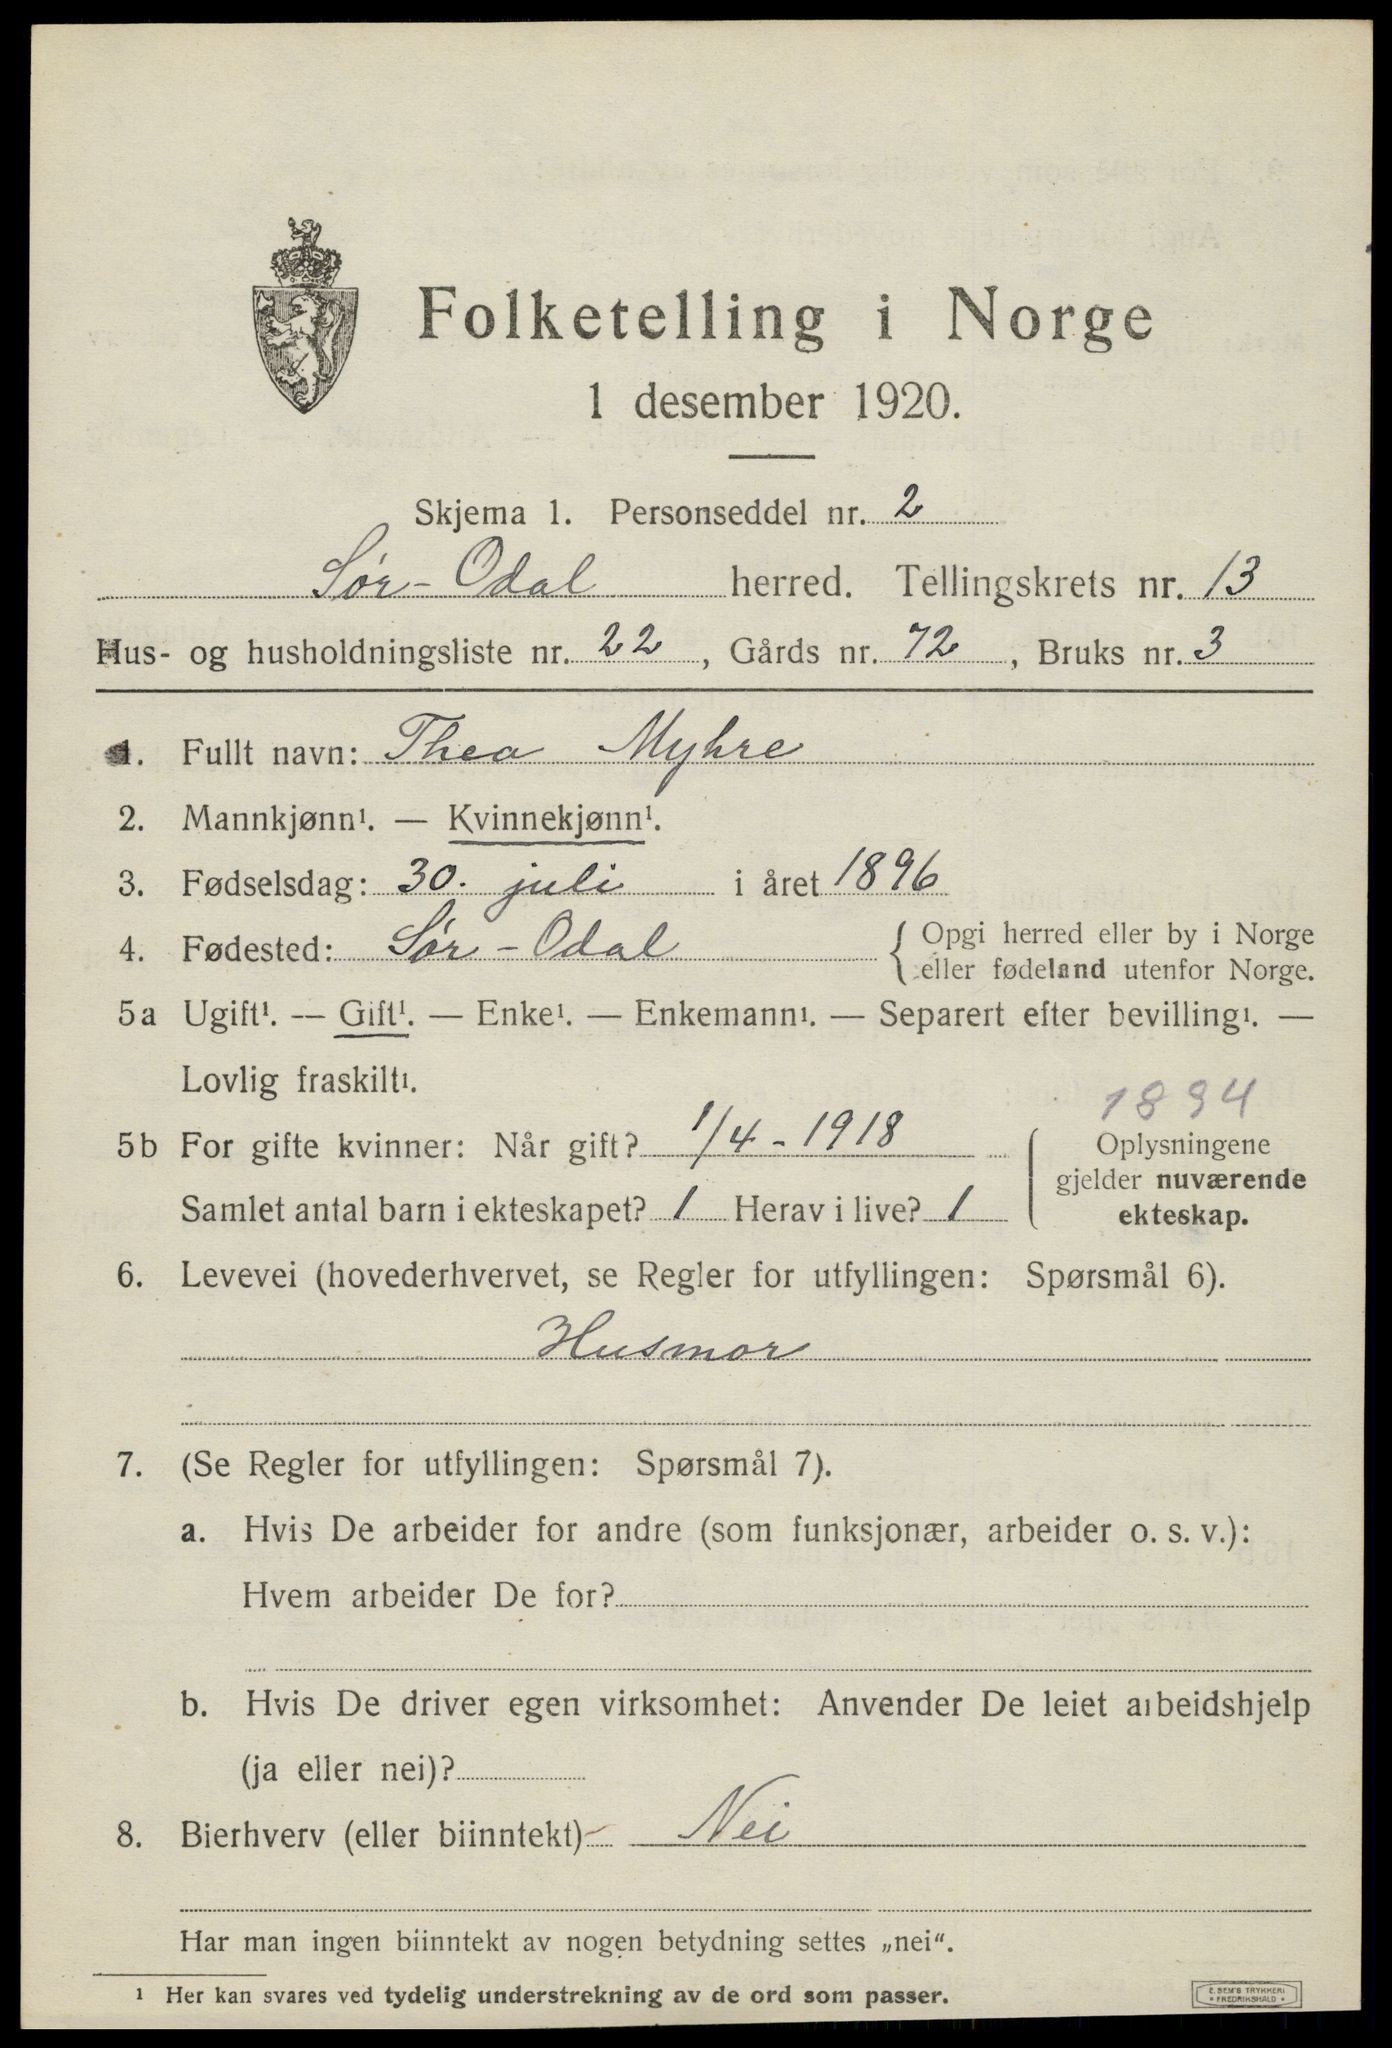 Folketelling i Norge
1 desember 1920.
Skjema 1. Personseddel nr. 2
Sør-Odal herred. Tellingskrets nr. 13
Hus- og husholdningsliste nr. 22, Gårds nr. 72, Bruks nr. 3
1. Fullt navn: Thea Myhre
2. Mannkjønn¹. — Kvinnekjønn¹.
3. Fødselsdag: 30. juli i året 1896
4. Fødested: Sør-Odal { Opgi herred eller by i Norge
eller fødeland utenfor Norge.
5a Ugift¹. — Gift¹. — Enke¹. — Enkemann¹. — Separert efter bevilling¹. —
Lovlig fraskilt¹.
1894
5b For gifte kvinner: Når gift? 1/4 - 1918
Samlet antal barn i ekteskapet? 1 Herav i live? 1
Oplysningene
gjelder nuværende
ekteskap.
6. Levevei (hovederhvervet, se Regler for utfyllingen: Spørsmål 6).
Husmor
7. (Se Regler for utfyllingen: Spørsmål 7).
a. Hvis De arbeider for andre (som funksjonær, arbeider o. s. v.):
Hvem arbeider De for?
b. Hvis De driver egen virksomhet: Anvender De leiet arbeidshjelp
(ja eller nei)?
8. Bierhverv (eller biinntekt) Nei
Har man ingen biinntekt av nogen betydning settes „nei“.
¹ Her kan svares ved tydelig understrekning av de ord som passer.
E. SEM'S TRYKKERI
* FREDRIKSHALD *